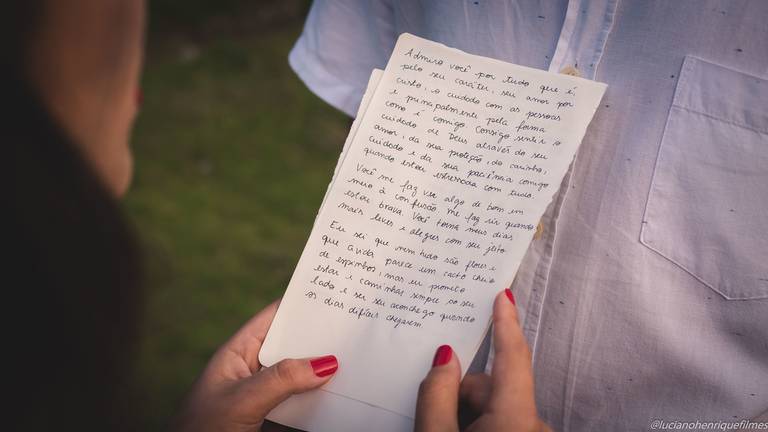 Admiro você por tudo que é,
pelo seu caráter, seu amor por
cristo, o cuidado com as pessoas
e principalmente pela forma
como é comigo. Consigo sentir o
cuidado de Deus através do seu
amor, da sua proteção, do carinho,
cuidado e da sua paciência comigo
quando estou estressada com tudo.
Você me faz ver algo de bom em
meio à confusão. me faz rir quando
estou brava. Você torna meus dias
mais leves e alegres com seu jeito.
Eu sei que nem tudo são flores e
que a vida parece um cacto cheio
de espinhos, mas eu prometo
estar e caminhar sempre ao seu
lado e ser seu aconchego quando
os dias difíceis chegarem
@lucianohenriquefilmes